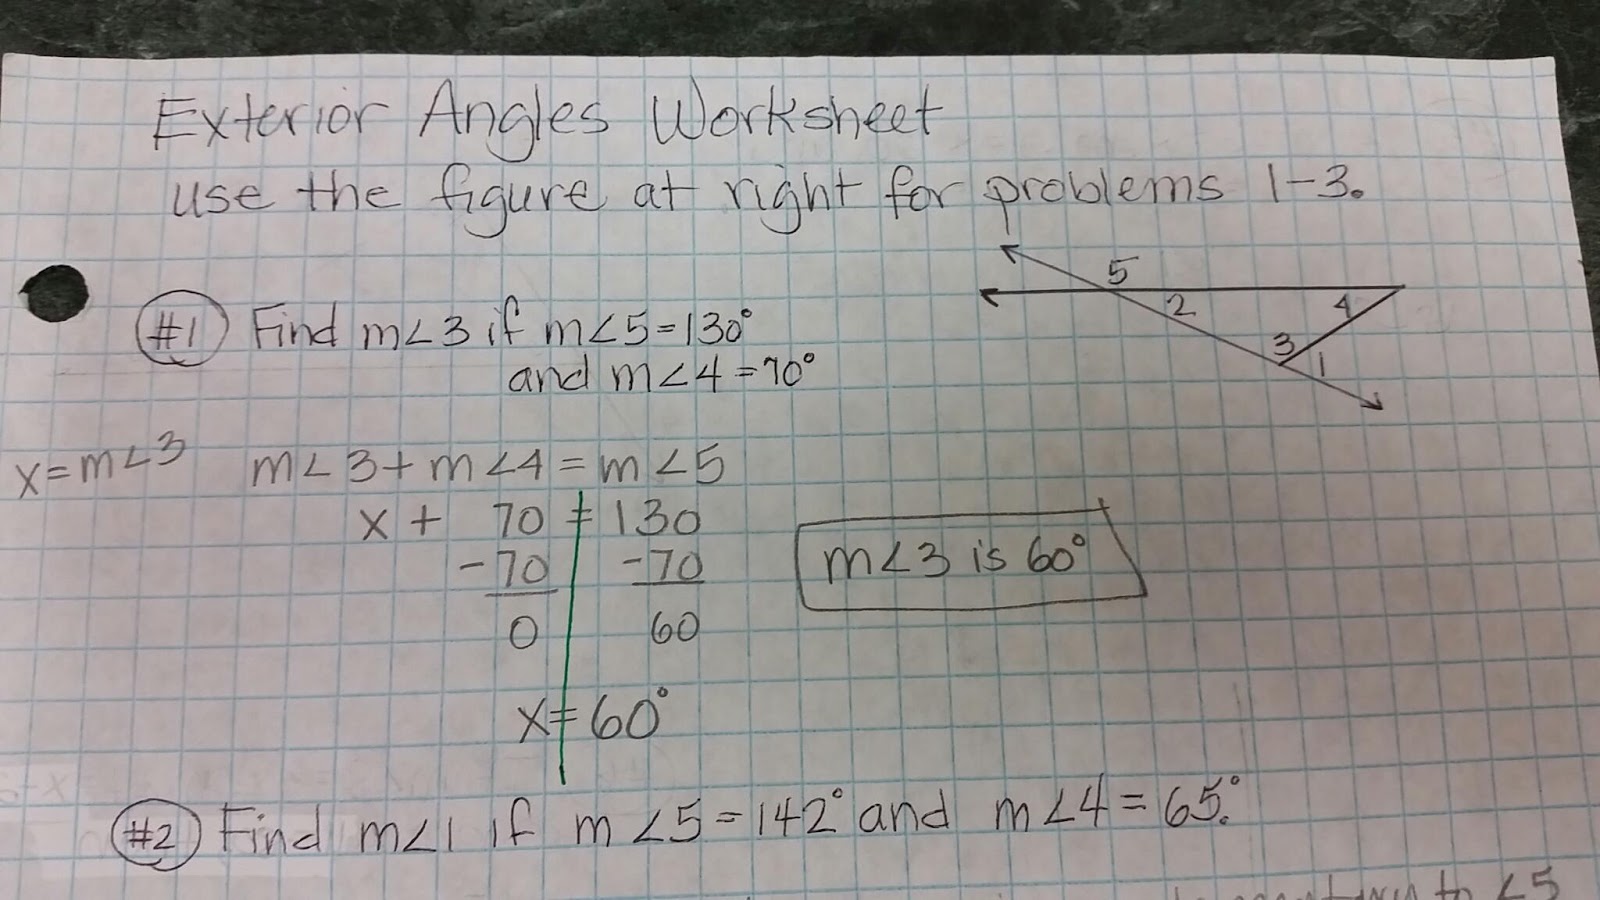 Exterior Angles Worksheet
use the figure at right for problems 1-3.
5
2
4
3
1
#1 Find m∠3 if m∠5=130°
and m∠4=70°
x=m∠3 m∠3+m∠4=m∠5
x + 70 = 130
-70 -70
0 60
x=60°
m∠3 is 60°
#2 Find m∠1 if m∠5=142° and m∠4=65°.
to ∠5